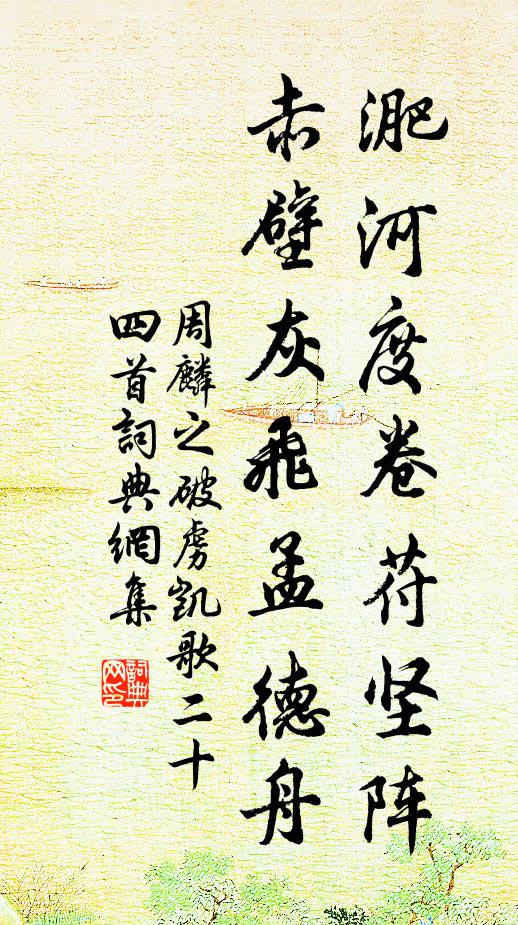 淝河度卷苻坚阵
赤壁灰飛孟德舟
周麟之破虏凯歌二十
四首詞典網集
詞典网印